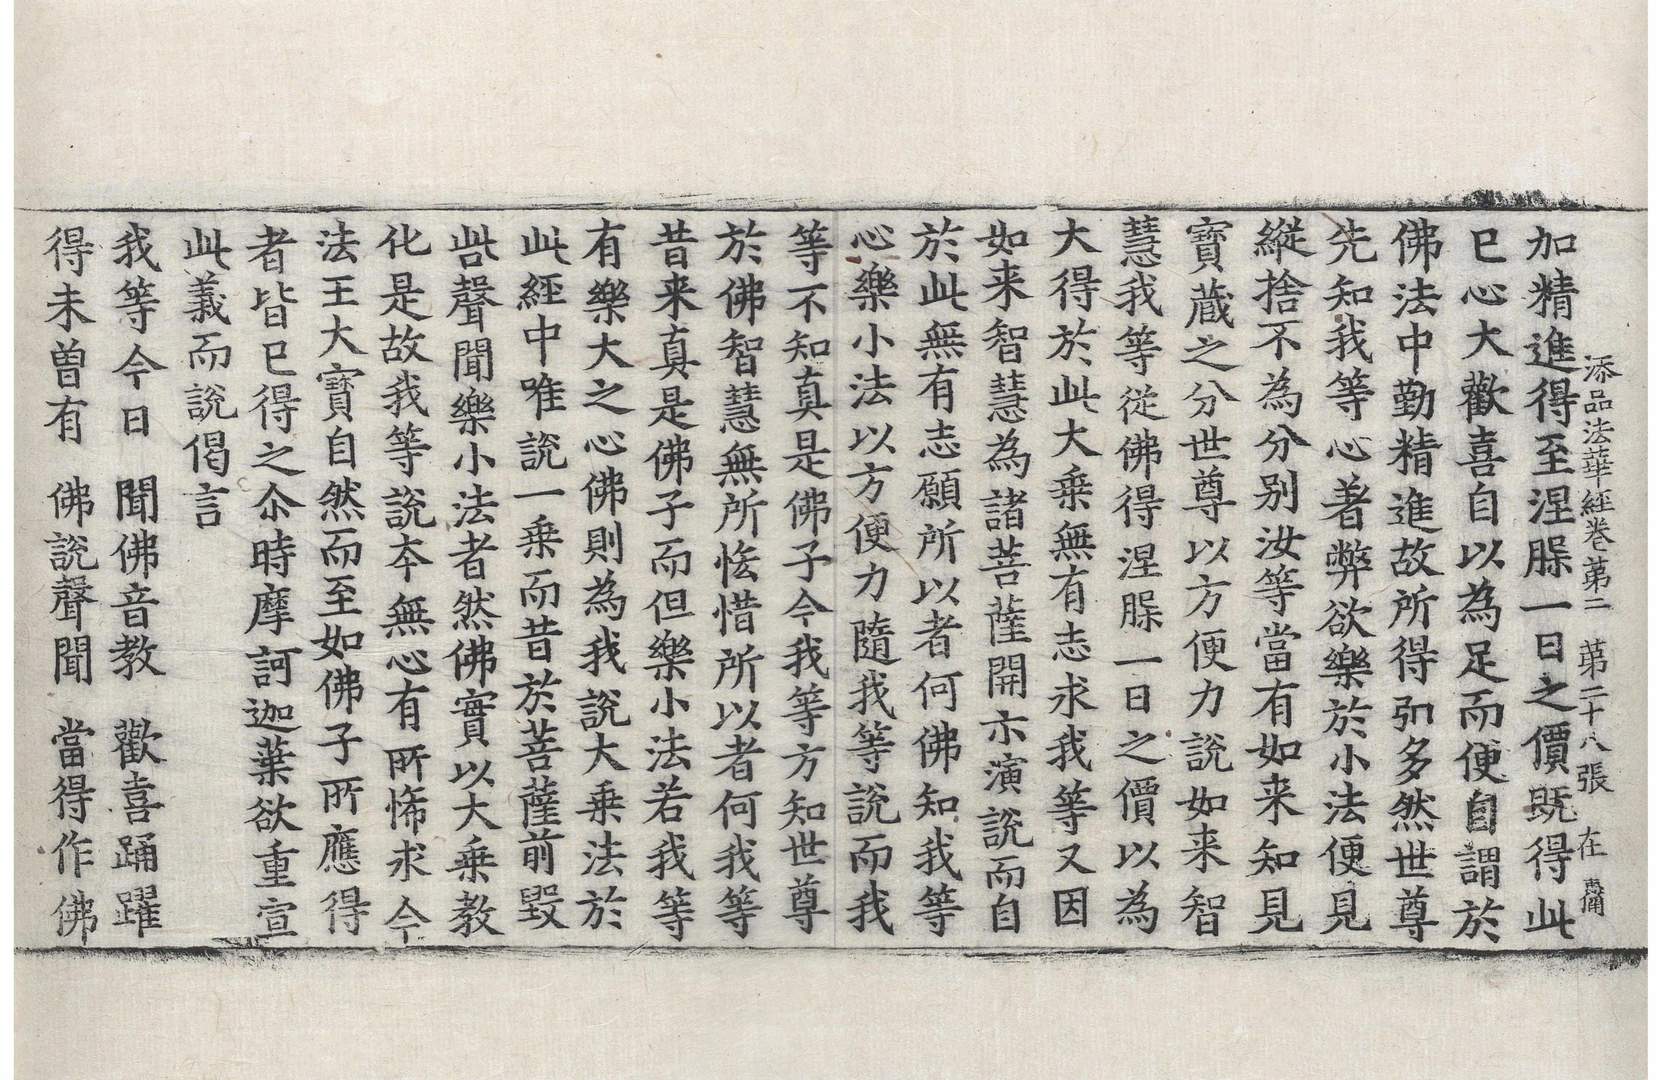 添品法華經卷第二　第二十八張　在　書甫
加精進得至涅槃一日之價既得此
已心大歡喜自以為足而便自謂於
佛法中勤精進故所得弘多然世尊
先知我等心著弊欲樂於小法便見
縱捨不為分別汝等當有如来知見
寶藏之分世尊以方便力說如来智
慧我等從佛得涅槃一日之價以為
大得於此大乗無有志求我等又因
如来智慧為諸菩薩開示演說而自
於此無有志願所以者何佛知我等
心樂小法以方便力隨我等說而我
等不知真是佛子今我等方知世尊
於佛智慧無所悋惜所以者何我等
昔来真是佛子而但樂小法若我等
有樂大之心佛則為我說大乗法於
此經中唯說一乗而昔於菩薩前毀
呰聲聞樂小法者然佛實以大乗教
化是故我等說本無心有所悕求今
法王大寶自然而至如佛子所應得
者皆已得之尒時摩訶迦葉欲重宣
此義而說偈言
我等今日　聞佛音教　歡喜踊躍
得未曽有　佛說聲聞　當得作佛